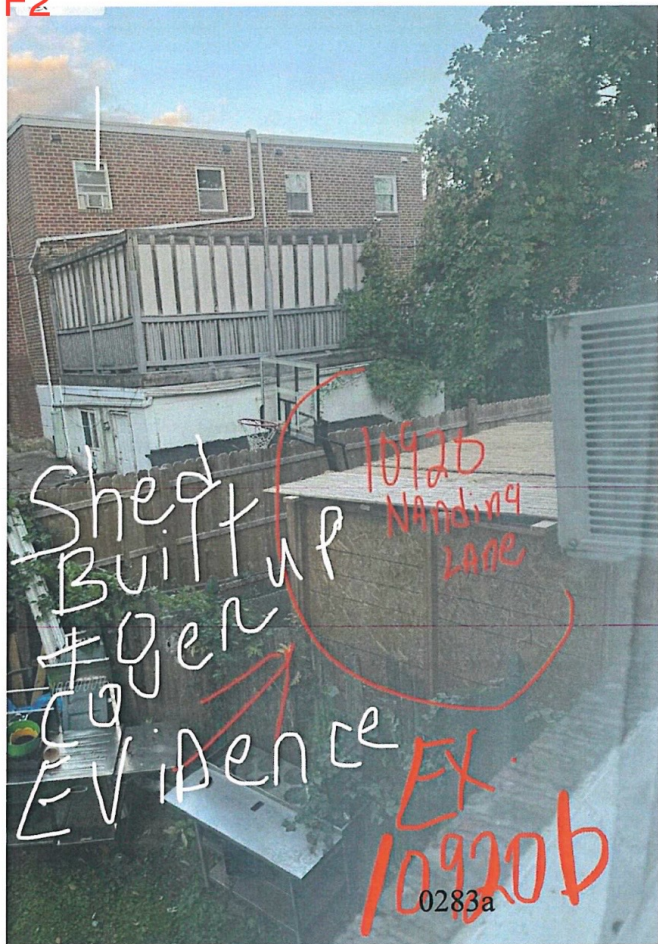 F2
10920
NANding
LANe
Shed
BuiLt up
to
CoveR
EViDence
EX.
10920b
0283a